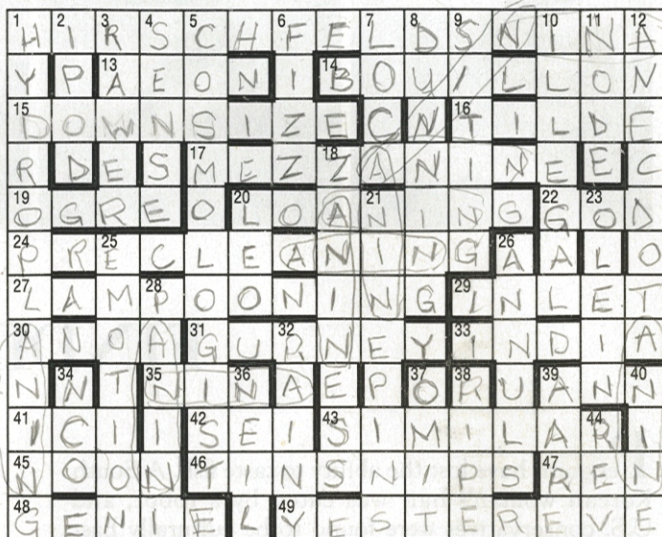 1 H 2 I 3 R 4 S 5 C H 6 F E 7 L 8 D 9 S N 10 I 11 N 12 A
Y P 13 A E O N I 14 B O U I L L O N
15 D O W N S I Z E C N 16 T I L D E
R D E S 17 M E Z 18 Z A N I N E E C
19 O G R E O 20 L O A 21 N I N G 22 G 23 O D
24 P R 25 E C L E A N I N G 26 A A L O
27 L A M 28 P O O N I N G 29 I N L E T
30 A N O A 31 G U 32 R N E Y 33 I N D I A
N 34 N T 35 N I 36 N A E P 37 O 38 R U 39 A N 40 N
41 I C I I 42 S E I 43 S I M I L A 44 R I
45 N O O N 46 T I N S N I P S 47 R E N
48 G E N I E L 49 Y E S T E R E V E